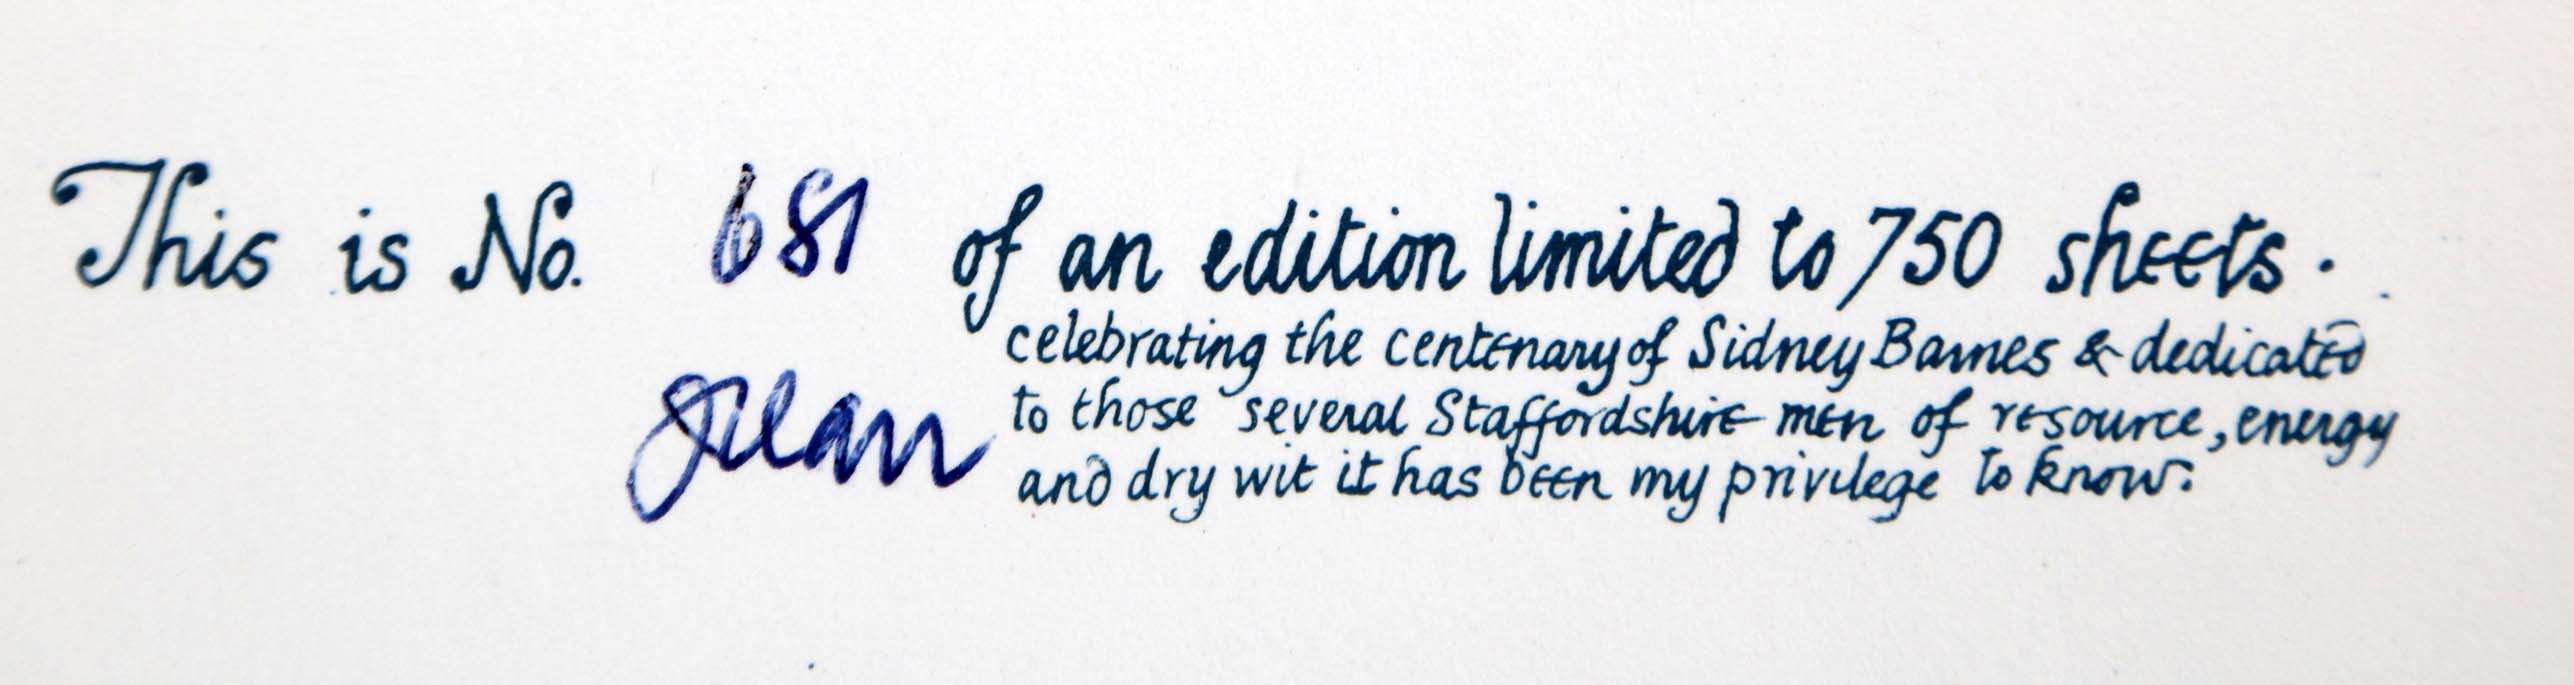 This is No. 681 of an edition limited to 750 sheets.
celebrating the centenary of Sidney Barnes & dedicated
to those several Staffordshire men of resource, energy
and dry wit it has been my privilege to know.